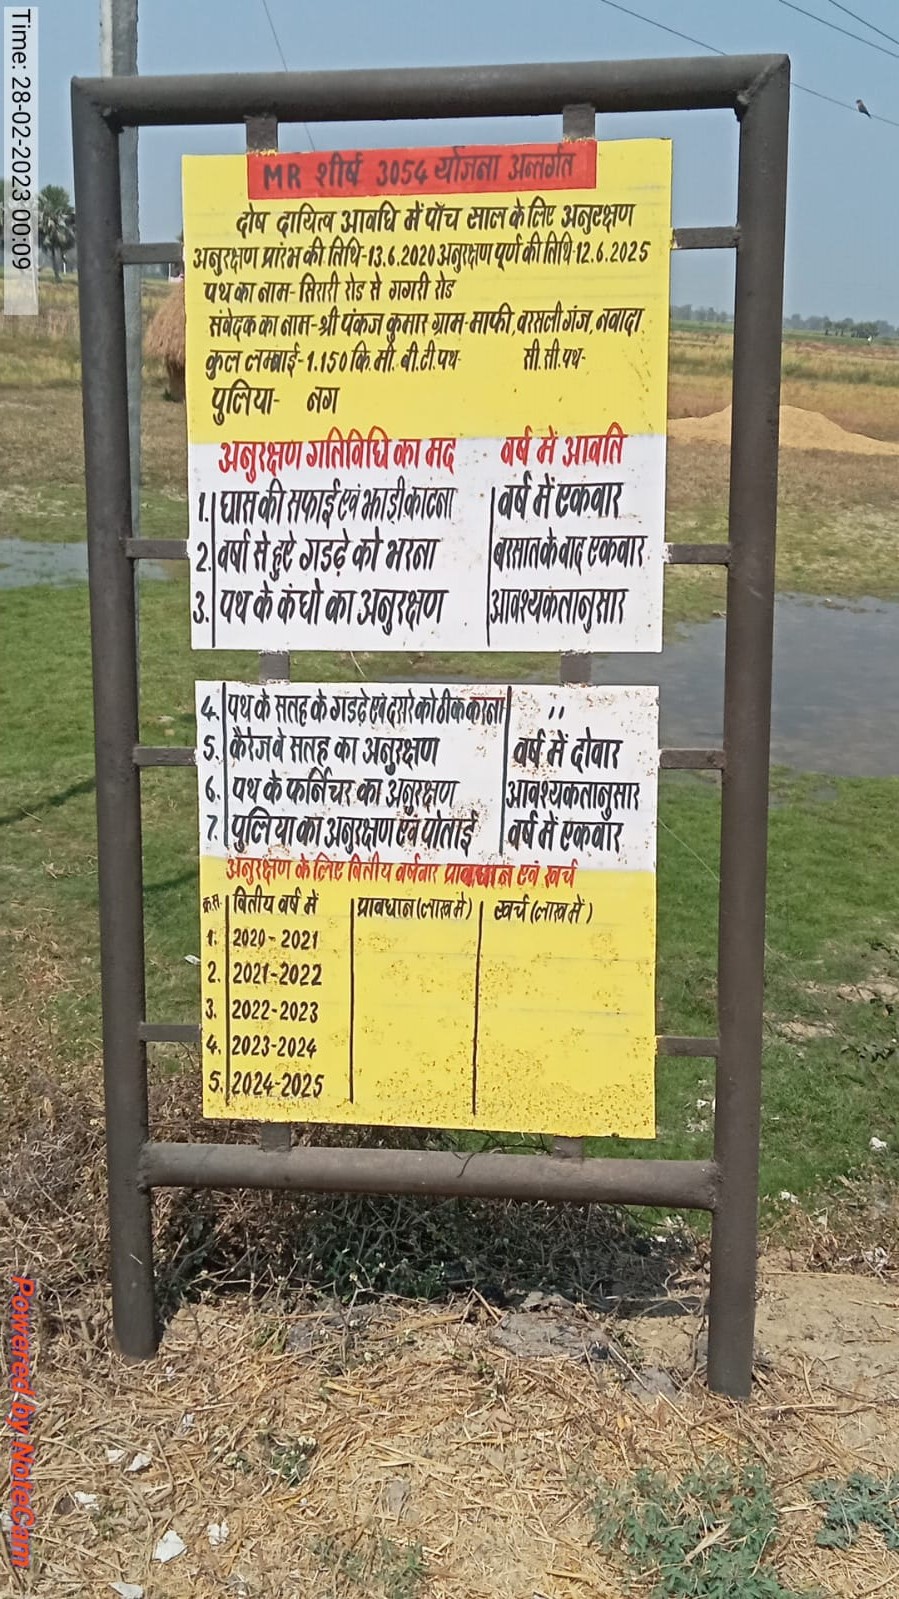 MR शीर्ष 3054 योजना अन्तर्गत
दोष दायित्व आवधि में पाँच साल के लिए अनुरक्षण
अनुरक्षण प्रारंभ की तिथि-13.6.2020 अनुरक्षण पूर्ण की तिथि-12.6.2025
पथ का नाम- सिरारी रोड से गगरी रोड
संवेदक का नाम-श्री पंकज कुमार ग्राम-माफी, वरसली गंज, नवादा
कुल लम्बाई-1.150 कि.मी. वी.टी.पथ- सी.सी.पथ-
पुलिया- नग
अनुरक्षण गतिविधि का मद वर्ष में आवति
1. घास की सफाई एवं झाड़ी काटना वर्ष में एकवार
2. वर्षा से हुऐ गडढ़े को भरना वरसात के वाद एकवार
3. पथ के कंधो का अनुरक्षण आवश्यकतानुसार
4. पथ के सतह के गडढ़े एवं दरारे को ठीक करना ,,
5. कैरेजवे सतह का अनुरक्षण वर्ष में दोवार
6. पथ के फर्निचर का अनुरक्षण आवश्यकतानुसार
7. पुलिया का अनुरक्षण एवं पोताई वर्ष में एकवार
अनुरक्षण के लिए वितीय वर्षवार प्रावधान एवं खर्च
क्र.सं. वितीय वर्ष में प्रावधान (लाख में) खर्च (लाख में)
1. 2020-2021
2. 2021-2022
3. 2022-2023
4. 2023-2024
5. 2024-2025
Time: 28-02-2023 00:09
Powered by NoteCam